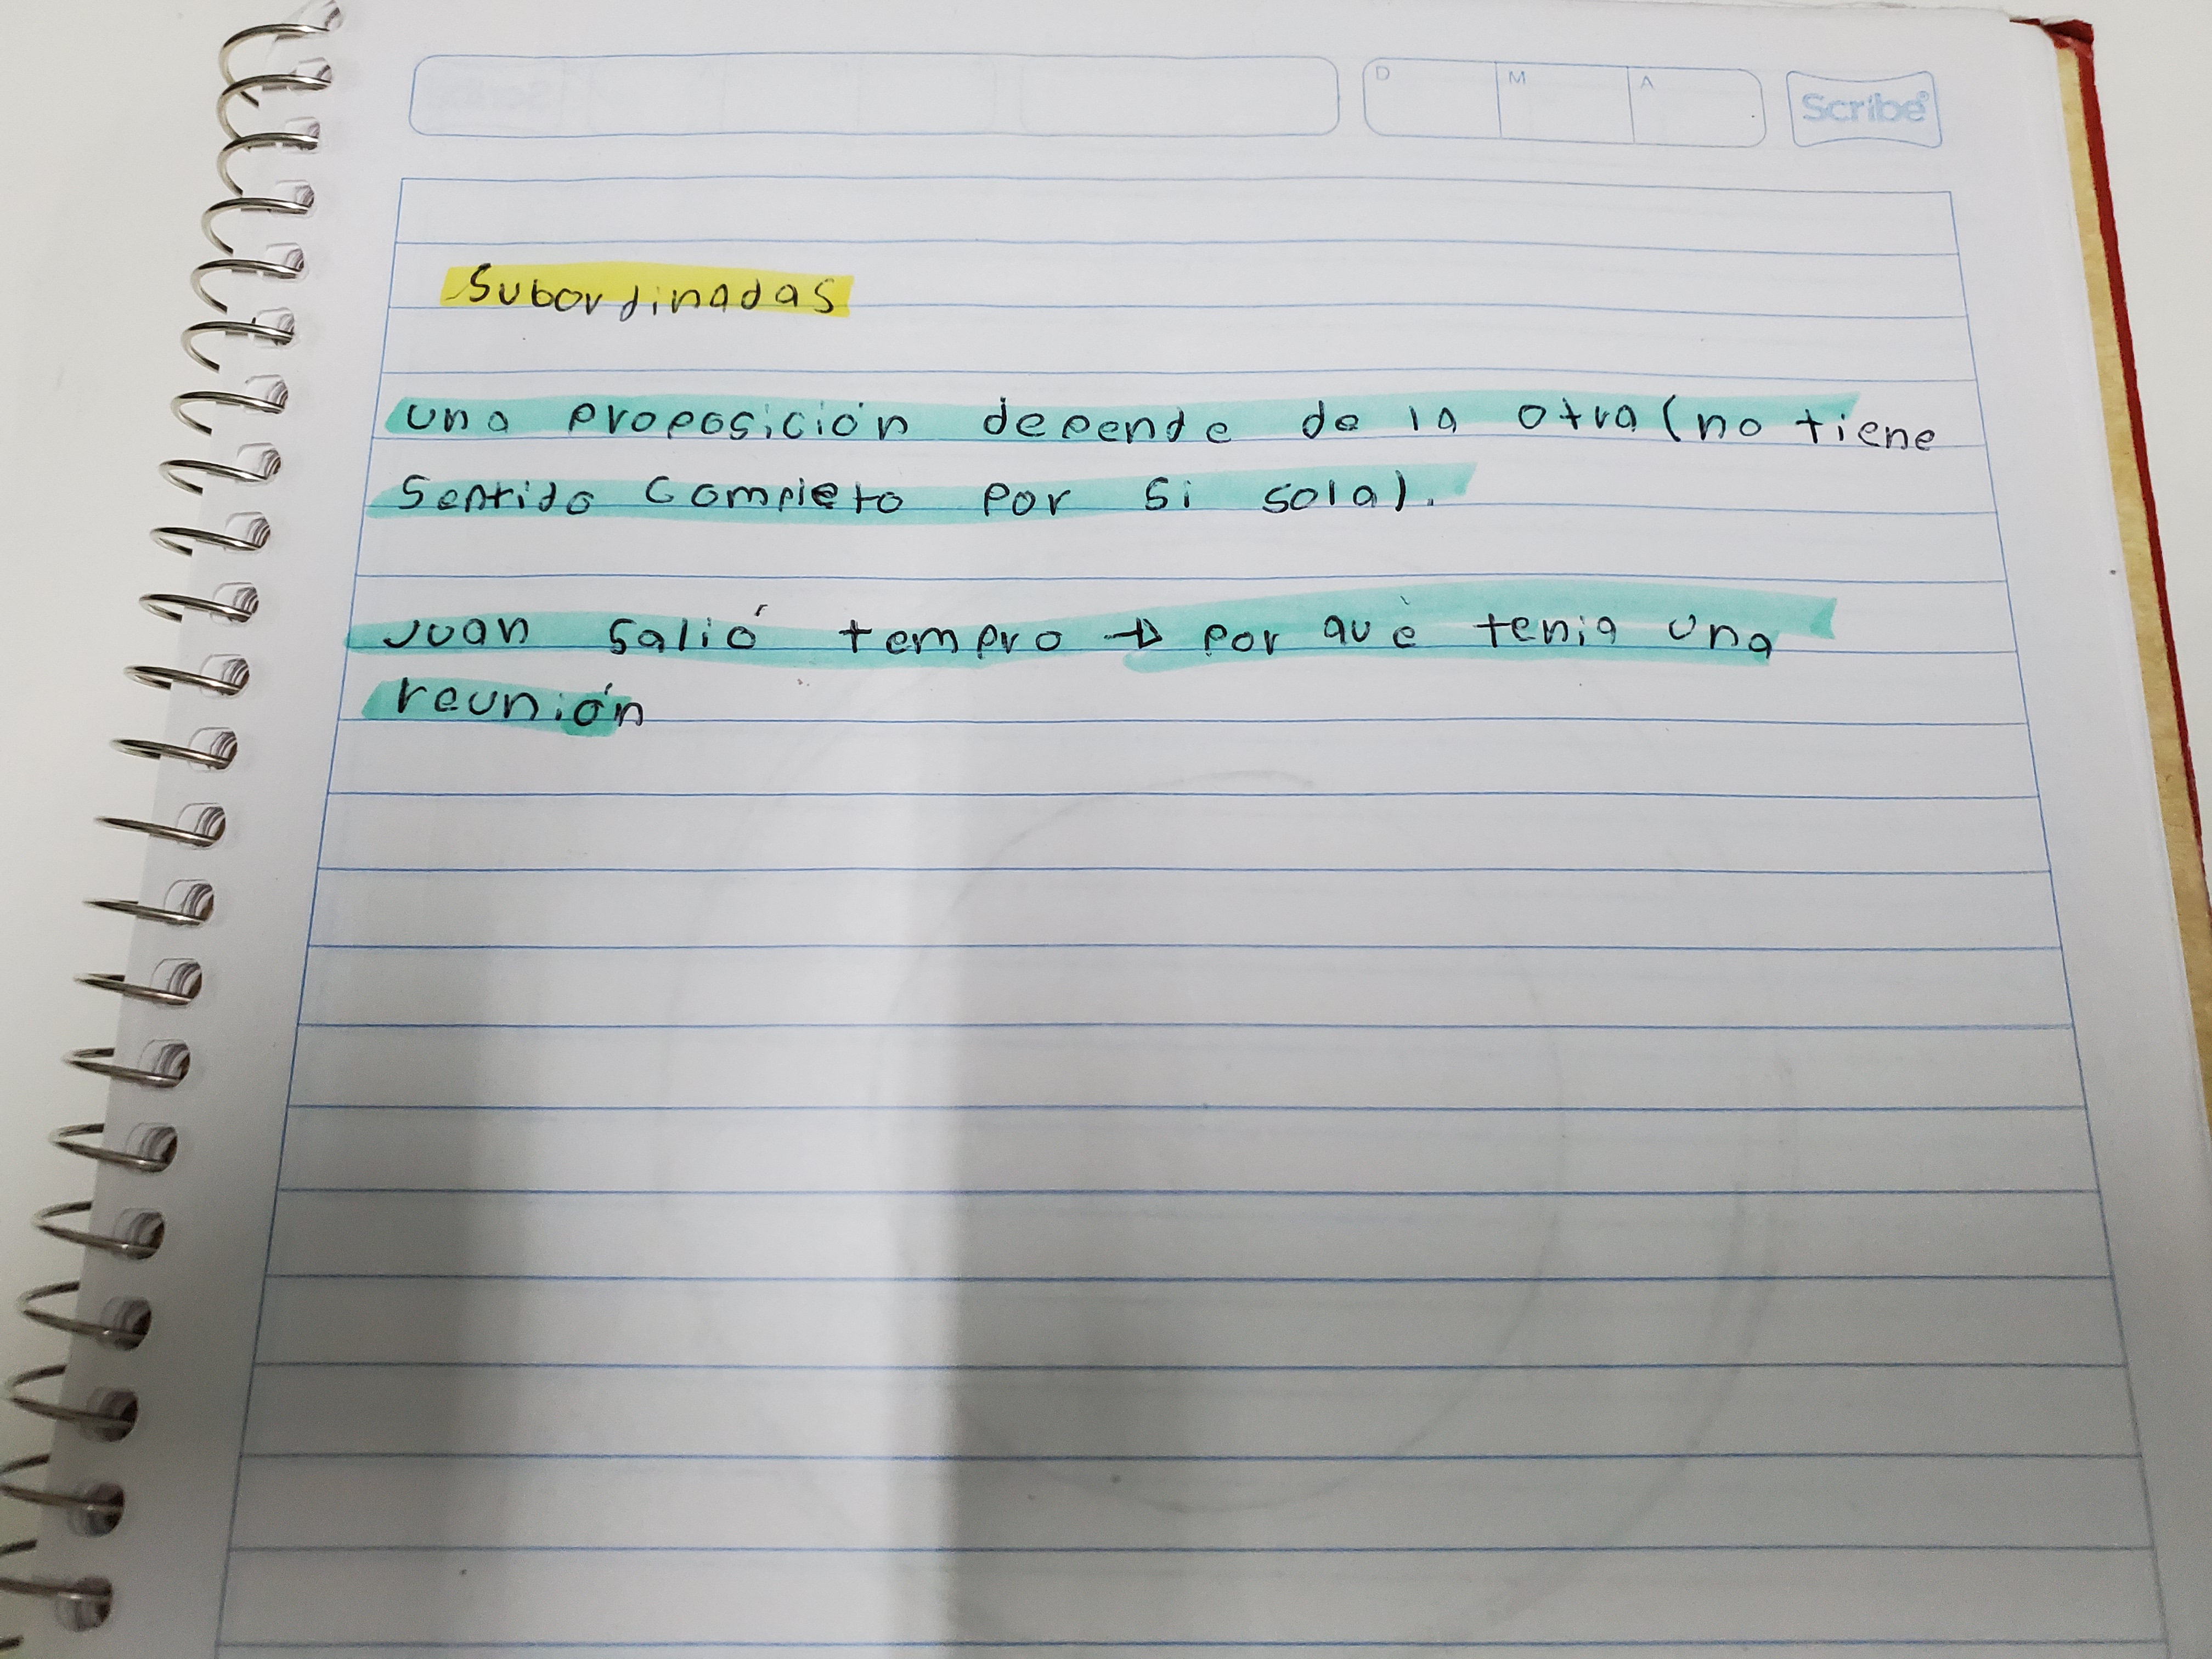 D M A Scribe®
Subordinadas
una proposición depende de la otra (no tiene
sentido completo por si sola).
Juan salió tempro → por què tenia una
reunión